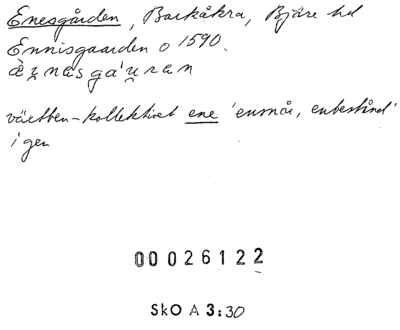 Enesgården, Barkåkra, Bjäre hd
Ennisgaarden o 1590.
växtben-kollektivet ene 'enesnår, enbestånd'
i gen
00026122
SkO A 3:30